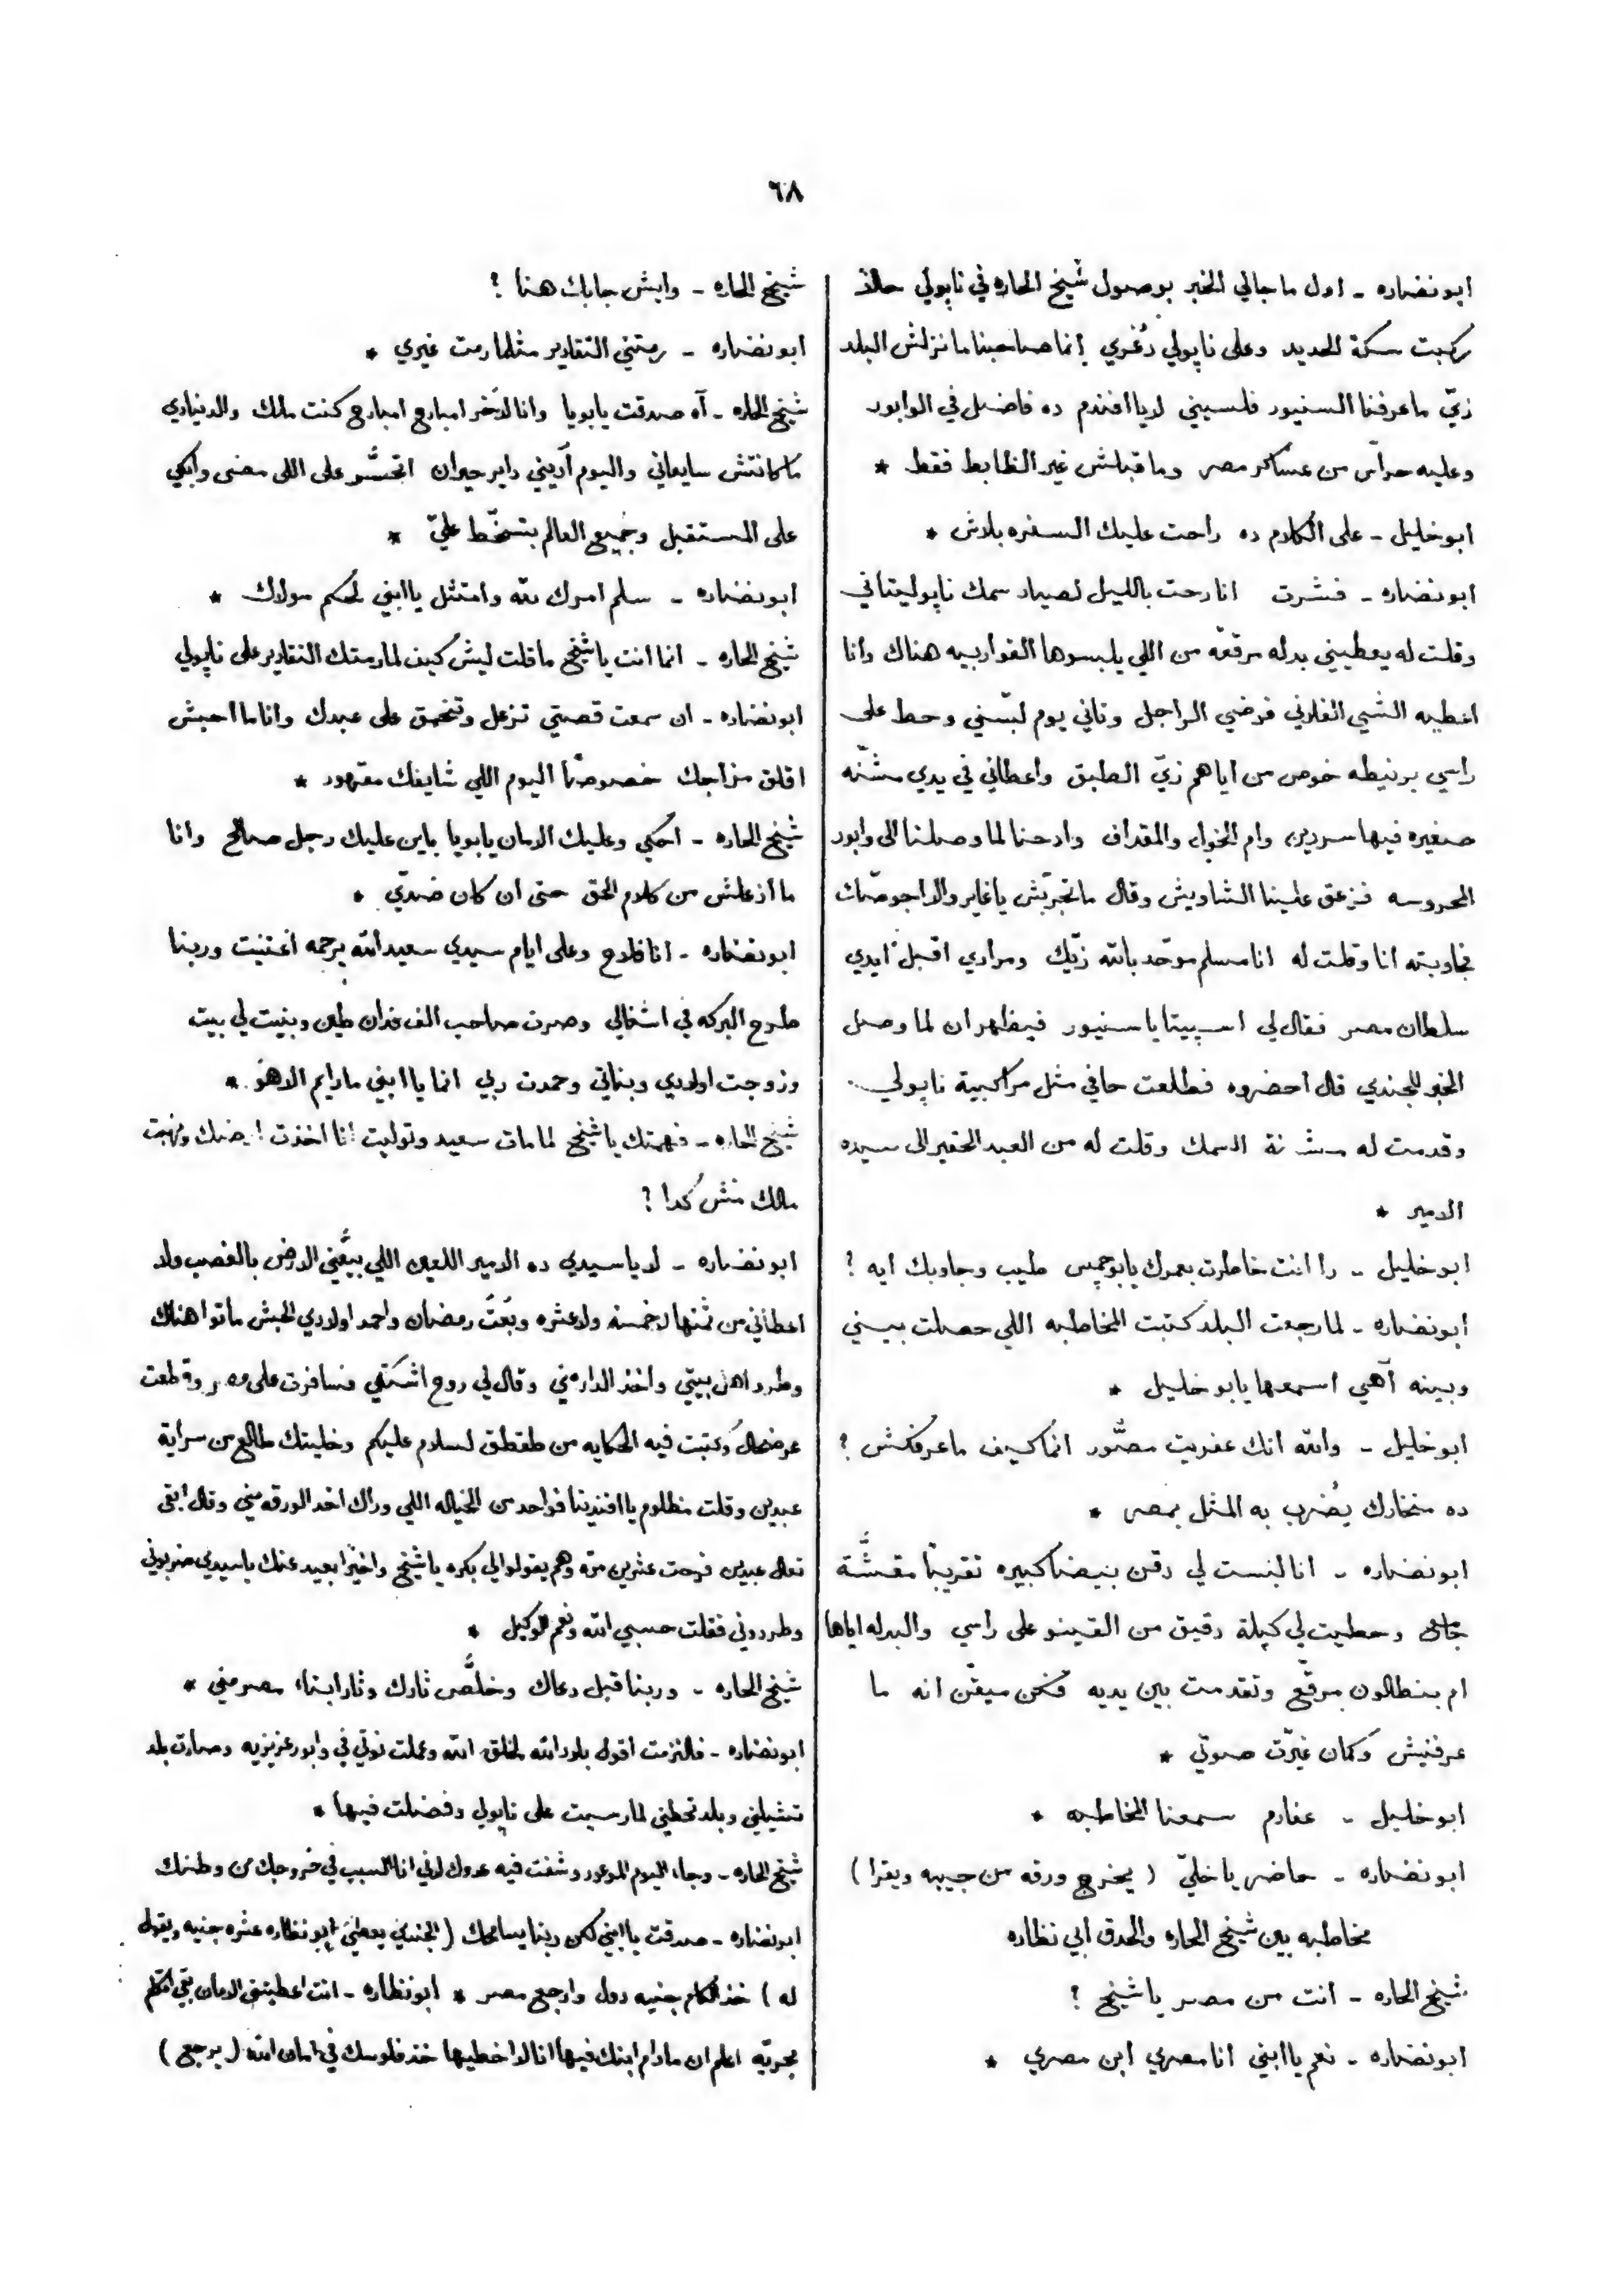 ٦٨
ابو نضاره - اول ما جالي الخبر بوصول شيخ الحاره في ناپولي حالاً
ركبت سكة الحديد وعلى ناپولي دُغري إنما صاحبنا ما نزلش البلد
زيّ ما عرفنا السنيور فلسيني لا يا افندم ده فاضل في الوابور
وعليه حراس من عساكر مصر وما قبلش غير الظابط فقط *
ابو خليل - على الكلام ده راحت عليك السفره بلاش *
ابو نضاره - فشرت انا رحت بالليل لصياد سمك ناپوليتاني
وقلت له يعطيني بدله مرقعّه من اللي يلبسوها القواربيه هناك وانا
اعطيه الشي الفلاني فرضي الراجل وتاني يوم لبّسني وحط على
راسي برنيطه خوص من اياهم زيّ الطبق واعطاني في يدي مشنّه
صغيره فيها سردين وام الخواء والمقداف وادحنا لما وصلنا الى وابور
المحروسه فزعق علينا الشاويش وقال ما تجربّش يا غاير والا اجوصّك
فجاوبته انا وقلت له انا مسلم موحّد بالله زيّك ومرادي اقبل ايدي
سلطان مصر فقال لي اسپيتا يا سنيور فيظهر ان لما وصل
الخبر للجندي قال احضروه فطلعت حافي مثل مراكبية ناپولي
وقدمت له مشنة السمك وقلت له من العبد الحقير الى سيده
الامير *
ابو خليل - دا انت خاطرت بعمرك يا بو طيب وجاوبك ايه ؟
ابو نضاره - لما رجعت البلد كتبت المخاطبه اللي حصلت بيني
وبينه آهي اسمعها يا بو خليل *
ابو خليل - والله انك عفريت مصّور انما كيف ما عرفكش ؟
ده منخارك يُضرب به المثل بمصر *
ابو نضاره - انا لبست لي دقن بيضا كبيره تقريباً مقشَّة
وحطيت لي كيلة دقيق من الفينو على راسي والبدله اياها
ام بنطالون مرقّع وتقدمت بين يديه فكن ميقّن انه ما
عرفنيش وكمان غيّرت صوتي *
ابو خليل - عفارم سمعنا المخاطبه *
ابو نضاره - حاضر يا خليّ ( يخرج ورقه من جيبه ويقرا )
مخاطبه بين شيخ الحاره والحدق ابي نظاره
شيخ الحاره - انت من مصر يا شيخ ؟
ابو نضاره - نعم يا ابني انا مصري ابن مصري *
شيخ الحاره - وايش جابك هنا ؟
ابو نضاره - رمتني التقادير مثلما رمت غيري *
شيخ الحاره - آه صدقت يا بويا وانا لاخر امبارح امبارح كنت ملك والدنيا دي
ما كانتش سايعاني واليوم آديني داير حيران اتحسَّر على اللى مضى وابكي
على المستقبل وجميع العالم بتسخّط عليّ *
ابو نضاره - سلم امرك لله وامتثل يا ابني لحكم مولاك *
شيخ الحاره - انما انت يا شيخ ما قلت ليش كيف لما رمتك التقادير على ناپولي
ابو نضاره - ان سمعت قصتي تزعل وتخمق على عبدك وانا ما احبش
اقلق مزاجك خصوصاً اليوم اللي شايفك مقهور *
شيخ الحاره - احكي وعليك الامان يا بويا باين عليك رجل صالح وانا
ما ازعلش من كلام الحق حتى ان كان ضدّي *
ابو نضاره - انا فلاح وعلى ايام سيدي سعيد الله يرحمه اغتنيت وربنا
طرح البركه في اشغالي وصرت صاحب الف فدان طين وبنيت لي بيت
وزوجت اولادي وبناتي وحمدت ربي انما يا ابني ما دايم الا هو *
شيخ الحاره - فهمتك يا شيخ لما مات سعيد وتوليت انا اخذت ارضك ونهبت
مالك مش كدا ؟
ابو نضاره - لا يا سيدي ده الامير اللعين اللي بيَّعني الارض بالغصب ولا
اعطاني من ثمنها لا خمسه ولا عشره وبُعتُ رمضان واحمد اولادي الحبش ماتوا هناك
وطرد اهل بيتي واخذ الدار مني وقال لي روح اشتكي فسافرت على مصر وقطعت
عرضحال وكتبت فيه الحكايه من طقطق لسلام عليكم وخليتك طالع من سراية
عبدين وقلت مظلوم يا افندينا فواحد من الخياله اللي وراك اخد الورقه مني وقال ابقى
تعال عبدين فرحت عشرين مرّه وهم يقولوا لي بكره يا شيخ واخيراً بعيد عنك يا سيدي ضربوني
وطردوني فقلت حسبي الله ونعم الوكيل *
شيخ الحاره - وربنا قبل دعاك وخلَّص تارك وتار ابناء مصر مني *
ابو نضاره - فالتزمت اقول بلاد الله لخلق الله وعملت نوتي في وابور عزيزيه وصارت بلد
تشيلني وبلد تحطني لما رسيت على ناپولي وفضلت فيها *
شيخ الحاره - وجاء اليوم الموعود وشفت فيه عدوك لاني انا السبب في خروجك من وطنك
ابو نضاره - صدقت يا ابني لكن ربنا يسامحك ( الجندي يعطي ابو نظاره عشره جنيه ويقول
له ) خذ لكام جنيه دول وارجع مصر * ابو نظاره - انت اعطيتني الامان بقى اتكلم
بحريّه اعلم ان ما دام ابنك فيها انا لا اخطيها خذ فلوسك في امان الله ( يرجع )